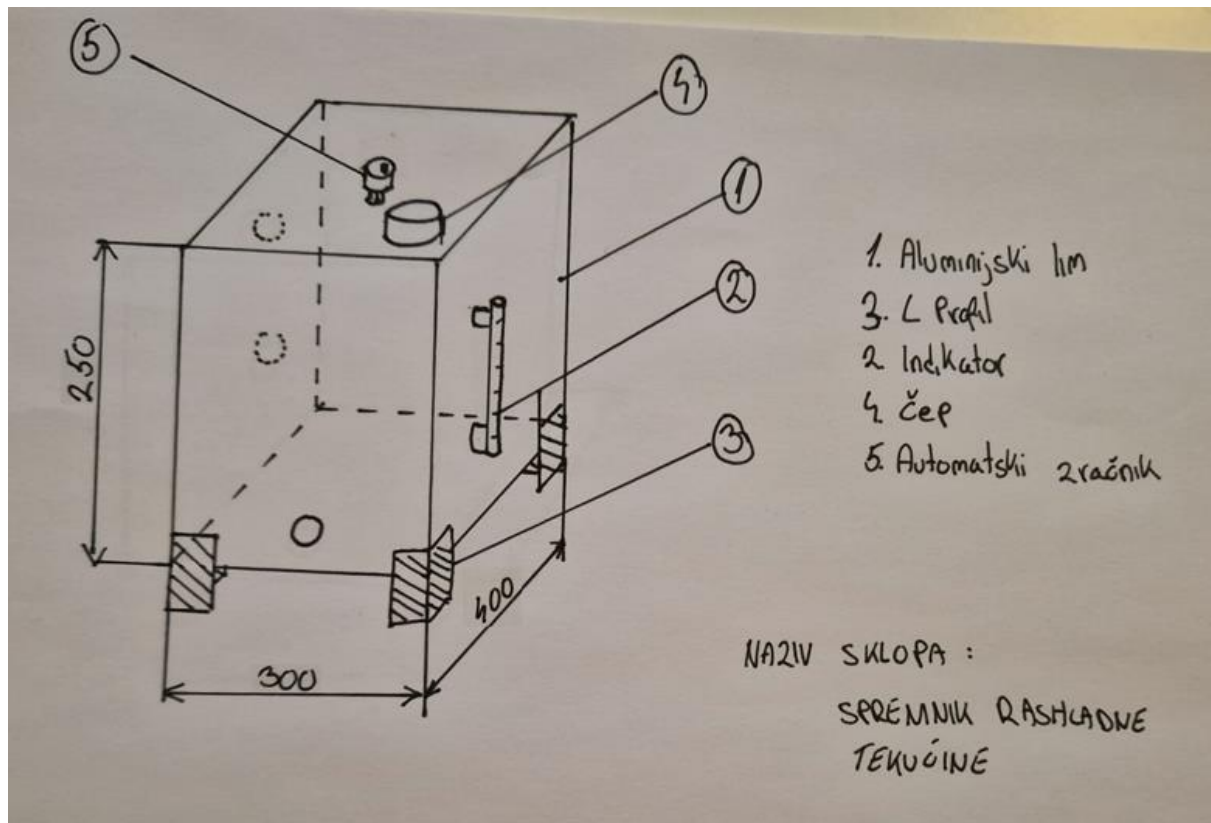 5
4
1
2
3
250
300
400
1. Aluminijski lim
3. L Profil
2 Indikator
4. Čep
5. Automatski zračnik
NAZIV SKLOPA :
SPREMNIK RASHLADNE
TEKUĆINE